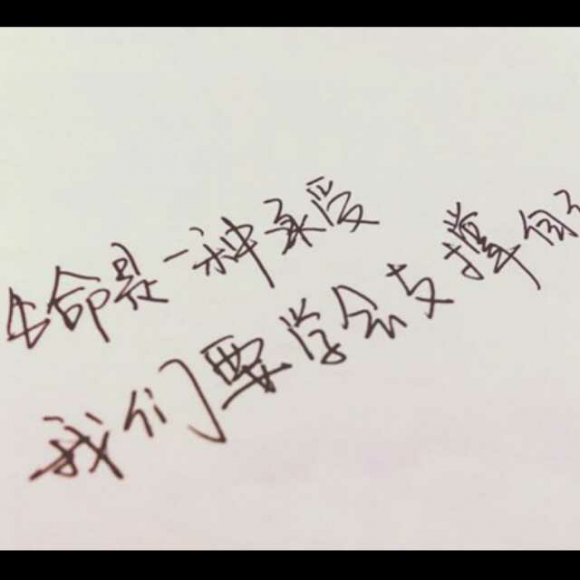 生命是一种承受
我们要学会支撑自